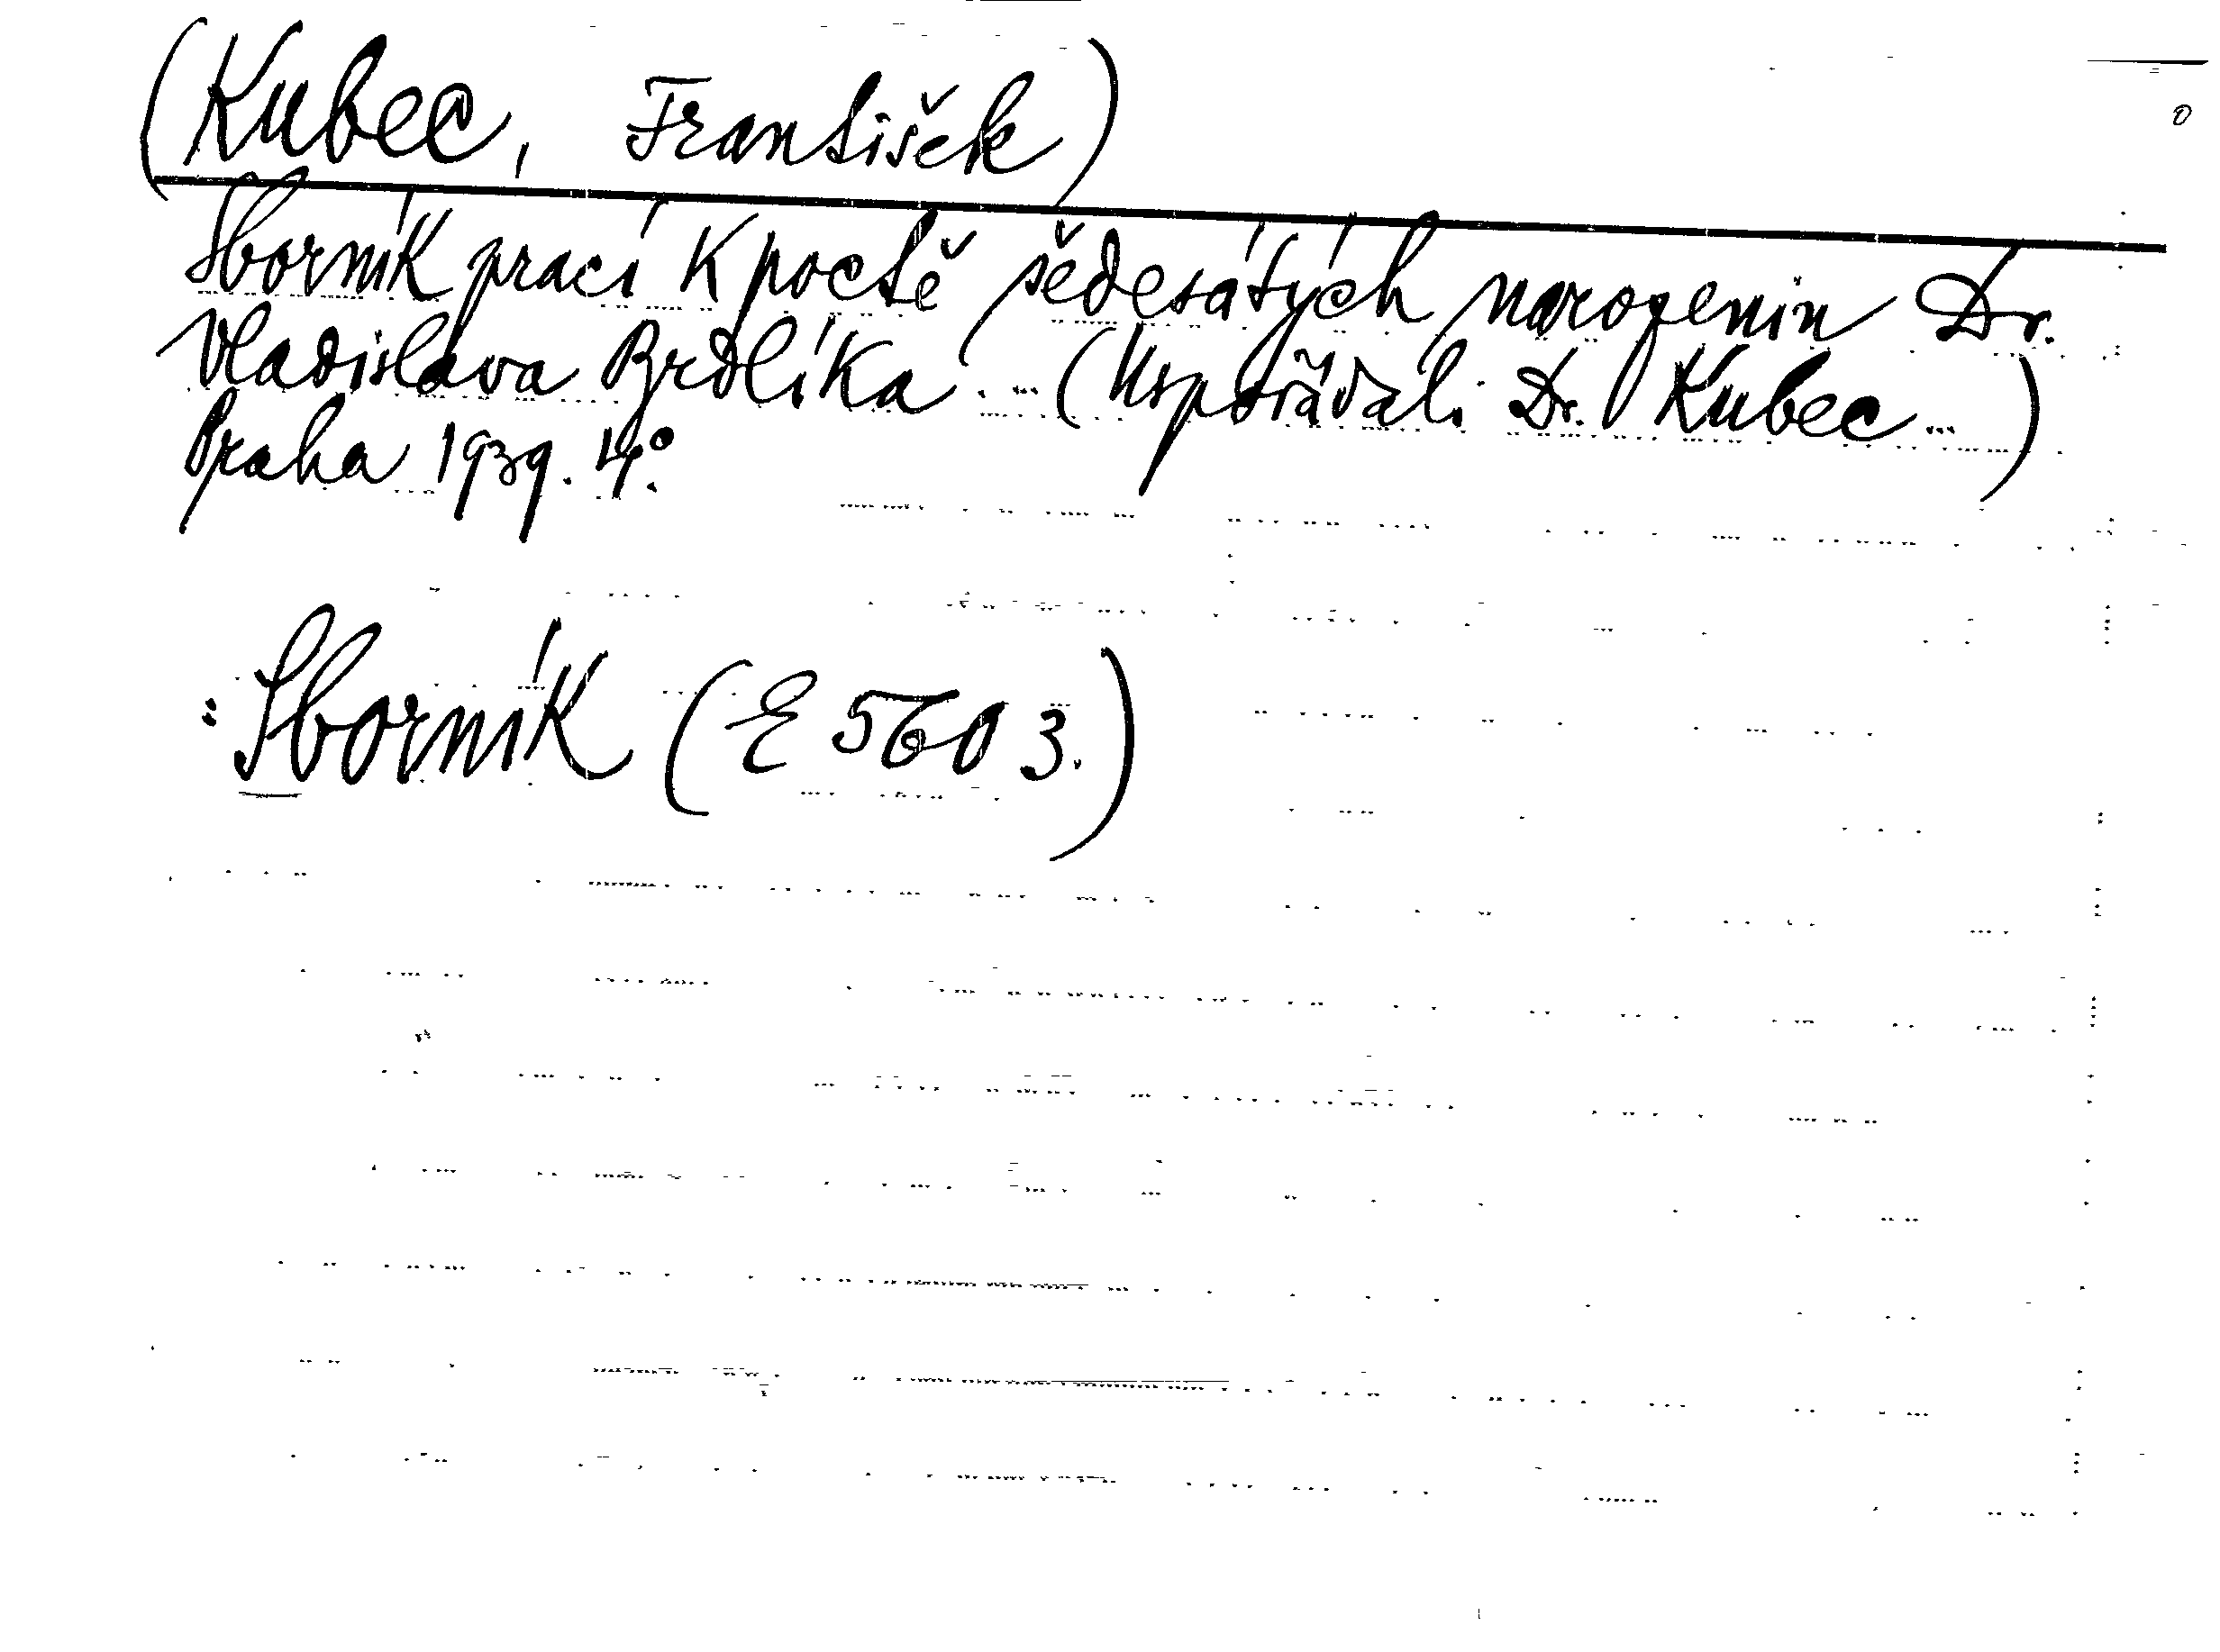 (Kubec, František)
Sborník prací k poctě šedesátých narozenin Dr.
Vladislava Brdlíka ... (Uspořádali Dr. Kubec ...)
Praha 1939. 4°.
: Sborník (E 5603.)